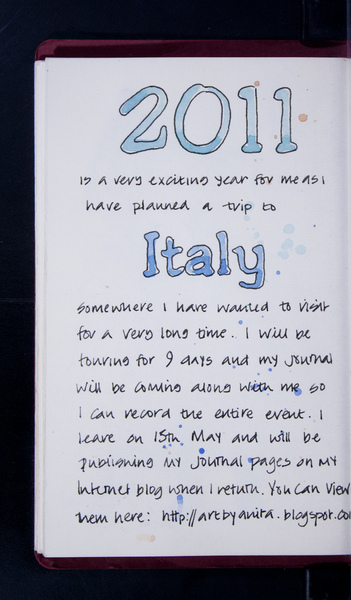 2011
is a very exciting year for me as i
have planned a trip to
Italy
somewhere i have wanted to visit
for a very long time. I will be
touring for 9 days and my journal
will be coming along with me so
I can record the entire event. I
leave on 15th May and will be
publishing my journal pages on my
internet blog when I return. You can view
them here: http://artbyanita.blogspot.co